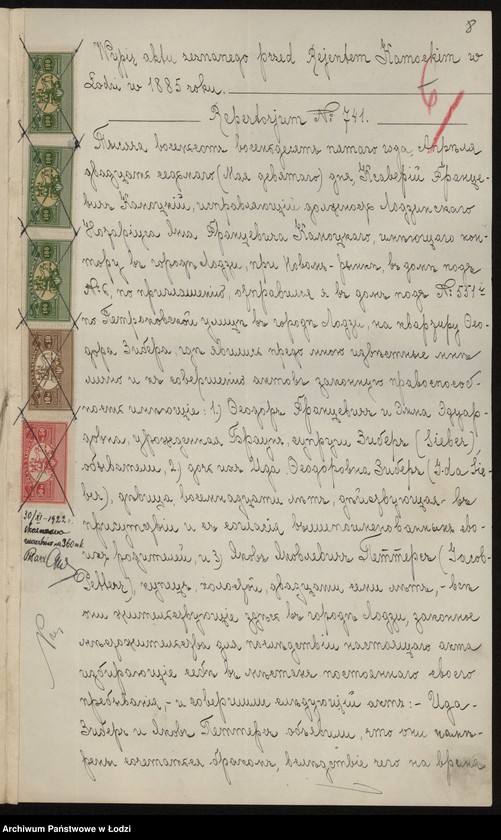 8
Wypis aktu zeznanego przed Rejentem Kamockim w
Łodzi w 1885 roku.
Repertorjum № 741.
6
Тысяча восемьсотъ восемьдесятъ пятаго года, Апрѣля
двадцать седьмаго (Мая девятаго) дня, Ксаверій Францe-
вичъ Камоцкій, исправляющій должность Лодзинскаго
Нотаріуса Яна Францевича Камоцкаго, имѣющаго кон-
тору въ городѣ Лодзи, при Новомъ-рынкѣ, въ домѣ подъ
№ 6, по приглашенію, отправился я въ домъ подъ № 551
по Петроковской улицѣ въ городѣ Лодзи, на квартиру Ѳео-
дора Зибера, гдѣ явились предо мною извѣстные мнѣ
лично и къ совершенію актовъ законную правоспособ-
ность имѣющіе: 1) Ѳеодоръ Францевичъ и Эмма Эдуар-
довна, урожденная Браунъ, супруги Зиберъ (Sieber),
обыватели, 2) дочь ихъ Ида Ѳеодоровна Зиберъ (Ida Sie-
ber), дѣвица, восемнадцати лѣтъ, дѣйствующая въ
присутствіи и съ согласія вышепоименованныхъ сво-
ихъ родителей, и 3) Яковъ Яковлевичъ Петтерсъ (Jacob
Petters), купецъ, холостой, двадцати семи лѣтъ, - всѣ
они жительствующіе здѣсь въ городѣ Лодзи, законное
мѣстожительство для послѣдствій настоящаго акта
избирающіе себѣ въ мѣстахъ постояннаго своего
пребыванія, - и совершили слѣдующій актъ: - Ида
Зиберъ и Яковъ Петтерсъ объявили, что они намѣ-
рены сочетаться бракомъ, вслѣдствіе чего на время
30/XI - 1922 r.
Archiwum Państwowe w Łodzi